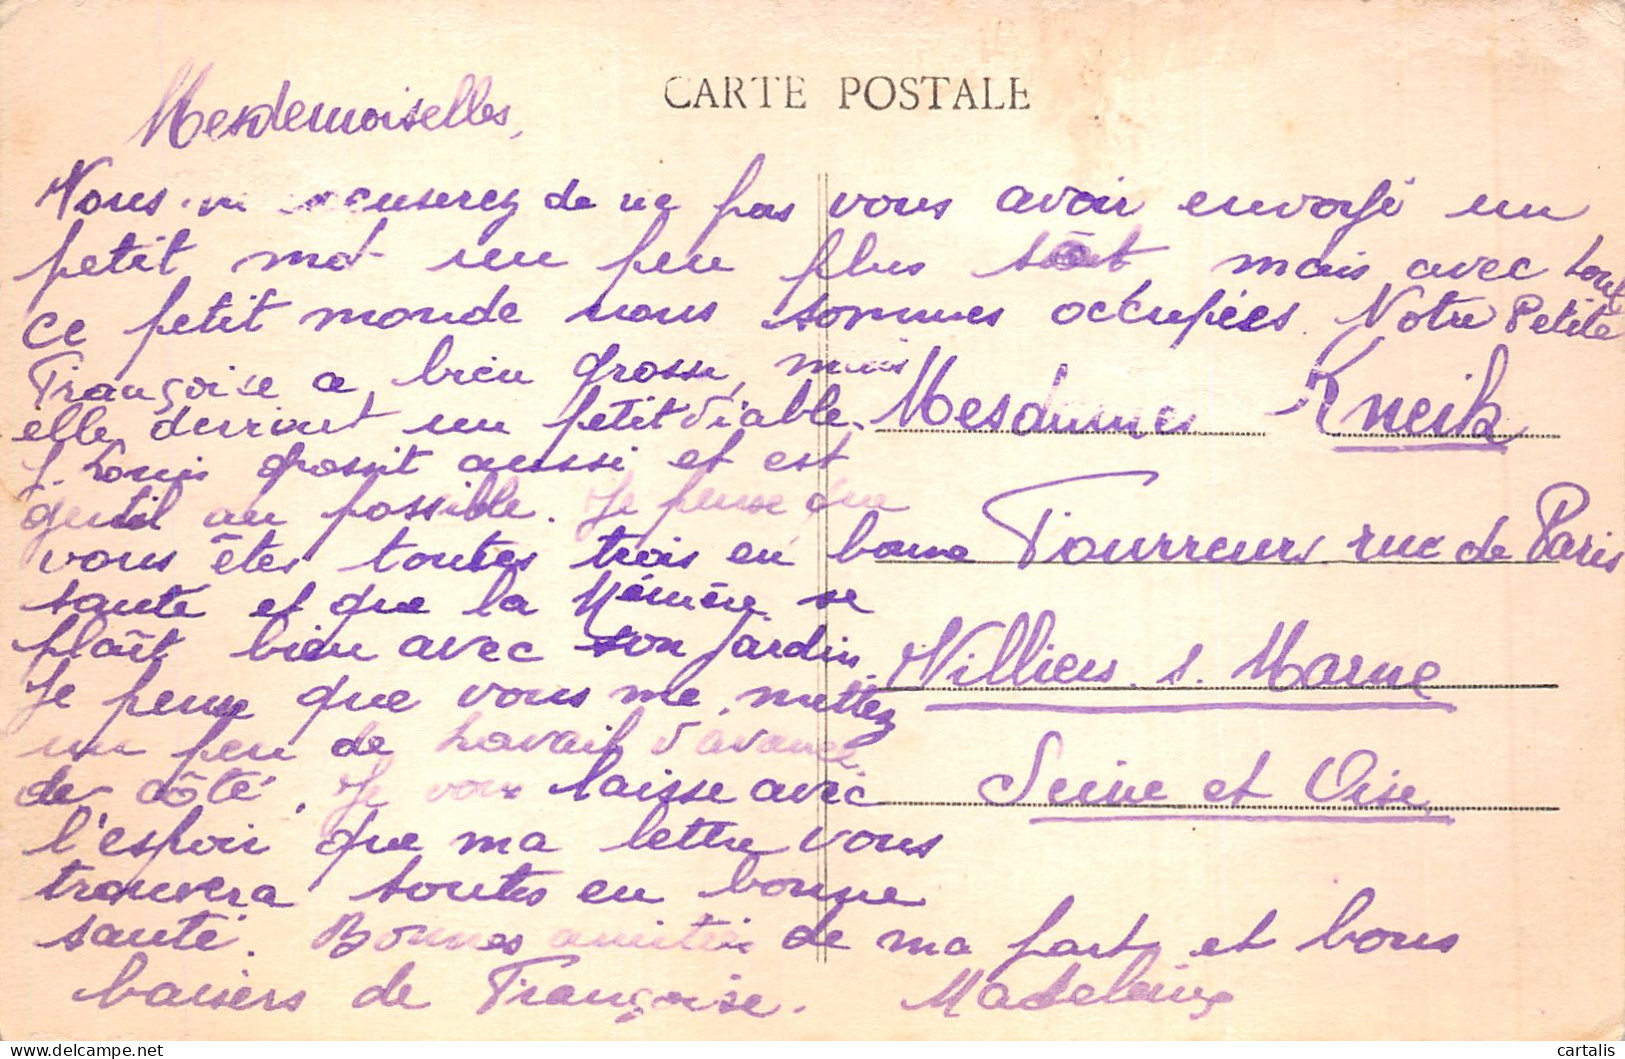 CARTE POSTALE
Mesdemoiselles,
Vous excuserez de ne pas vous avoir envoyé un
petit mot un peu plus tôt mais avec tout
ce petit monde nous sommes occupées. Notre Petite
Françoise a bien grossi, mais
elle devient un petit diable.
J. Louis grossit aussi et est
gentil au possible. Je pense que
vous êtes toutes trois en bonne
santé et que la Mémère se
plaît bien avec son jardin
Je pense que vous me mettez
un peu de travail d'avance
de côté. Je vous laisse avec
l'espoir que ma lettre vous
trouvera toutes en bonne
santé. Bonnes amitiés de ma part et bons
baisers de Françoise. Madeleine
Mesdames
rue de Paris
Villiers s. Marne
Seine et Oise
cartalis